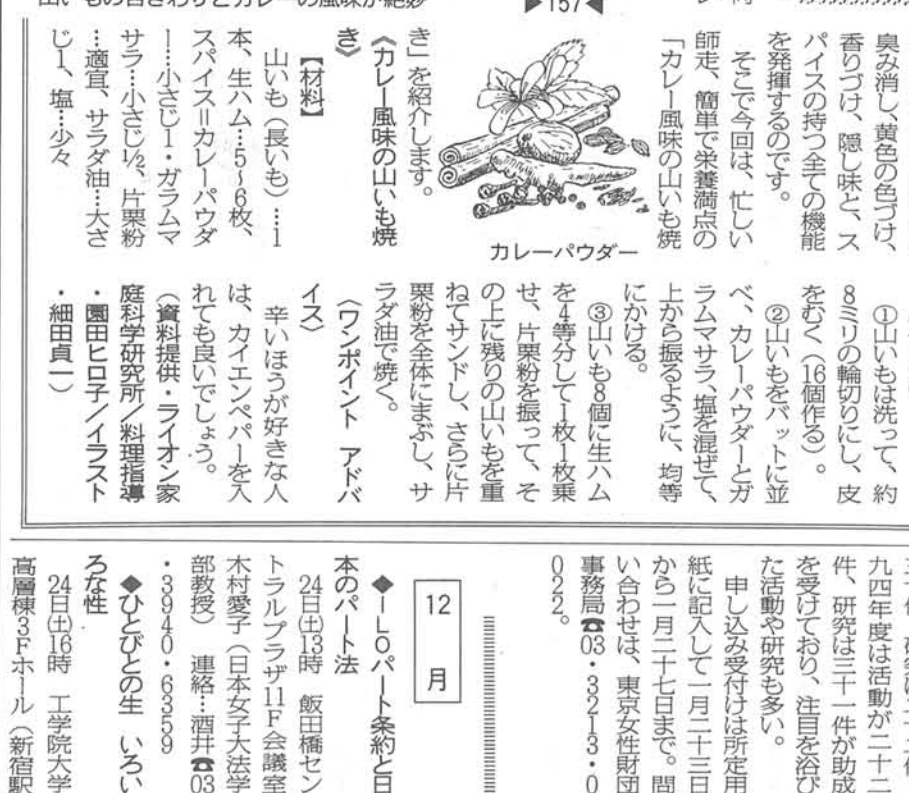 山いもの舌ざわりとカレーの風味が絶妙
▶157◀
臭み消し、黄色の色づけ、
香りづけ、隠し味と、ス
パイスの持つ全ての機能
を発揮するのです。
そこで今回は、忙しい
師走、簡単で栄養満点の
「カレー風味の山いも焼
き」を紹介します。
カレーパウダー
《カレー風味の山いも焼
き》
【材料】
山いも（長いも）…1
本、生ハム…5〜6枚、
スパイス＝カレーパウダ
ー…小さじ1・ガラムマ
サラ…小さじ½、片栗粉
…適宜、サラダ油…大さ
じ1、塩…少々
①山いもは洗って、約
8ミリの輪切りにし、皮
をむく（16個作る）。
②山いもをバットに並
べ、カレーパウダーとガ
ラムマサラ、塩を混ぜて、
上から振るように、均等
にかける。
③山いも8個に生ハム
を4等分して1枚1枚乗
せ、片栗粉を振って、そ
の上に残りの山いもを重
ねてサンドし、さらに片
栗粉を全体にまぶし、サ
ラダ油で焼く。
〈ワンポイント アドバ
イス〉
辛いほうが好きな人
は、カイエンペパーを入
れても良いでしょう。
（資料提供・ライオン家
庭科学研究所／料理指導
・園田ヒロ子／イラスト
・細田貞一）
九四年度は活動が二十二
件、研究は三十一件が助成
を受けており、注目を浴び
た活動や研究も多い。
申し込み受付けは所定用
紙に記入して一月二十三日
から一月二十七日まで。問
い合わせは、東京女性財団
事務局☎03・3213・0
022。
12月
◆ＩＬＯパート条約と日
本のパート法
24日㈯13時 飯田橋セン
トラルプラザ11F会議室
木村愛子（日本女子大法学
部教授） 連絡…酒井☎03
・3940・6359
◆ひとびとの生 いろい
ろな性
24日㈯16時 工学院大学
高層棟3Fホール（新宿駅